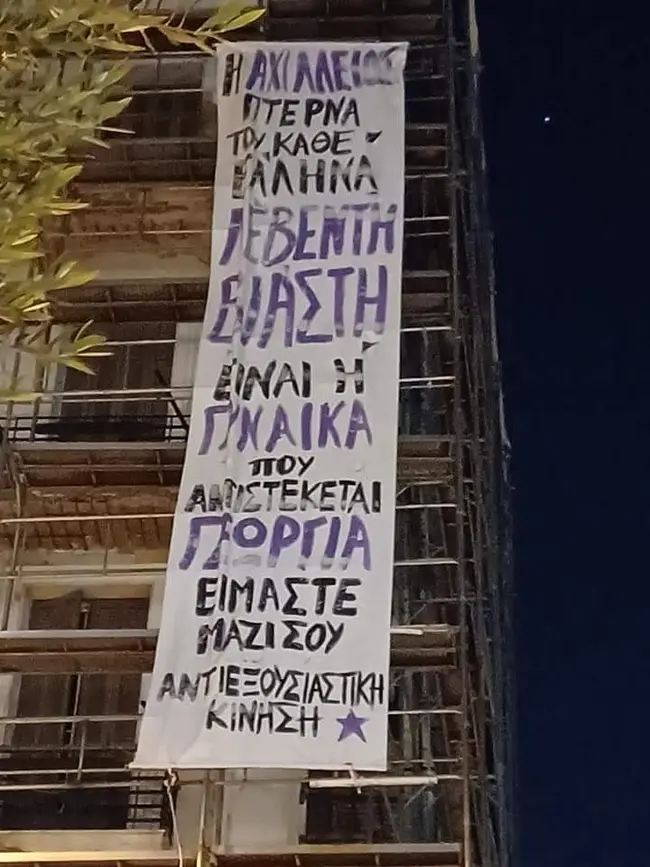 Η ΑΧΙΛΛΕΙΟΣ
ΠΤΕΡΝΑ
ΤΟΥ ΚΑΘΕ
ΈΛΛΗΝΑ
ΛΕΒΕΝΤΗ
ΒΙΑΣΤΗ
ΕΙΝΑΙ Η
ΓΥΝΑΙΚΑ
ΠΟΥ
ΑΝΤΙΣΤΕΚΕΤΑΙ
ΓΕΩΡΓΙΑ
ΕΙΜΑΣΤΕ
ΜΑΖΙ ΣΟΥ
ΑΝΤΙΕΞΟΥΣΙΑΣΤΙΚΗ
ΚΙΝΗΣΗ